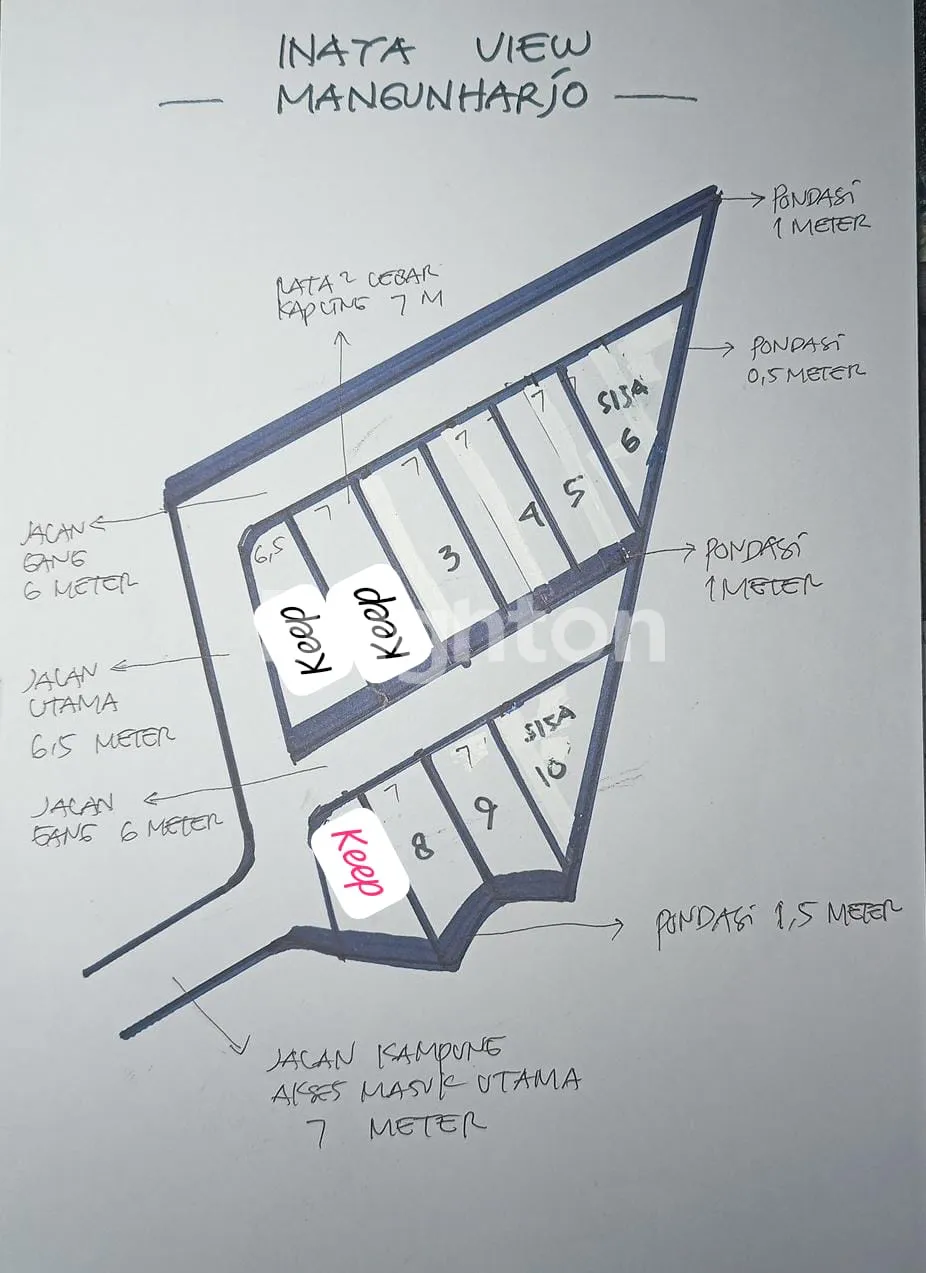 INATA VIEW
MANGUNHARJO
PONDASI
1 METER
RATA² LEBAR
KAPLING 7 M
PONDASI
0,5 METER
SISA
6
7
7
7
7
7
6,5
5
4
3
JALAN
GANG
6 METER
PONDASI
1 METER
Keep
Keep
Brighton
JALAN
UTAMA
6,5 METER
SISA
10
7
7
9
8
JALAN
GANG 6 METER
Keep
PONDASI 1,5 METER
JALAN KAMPUNG
AKSES MASUK UTAMA
7 METER